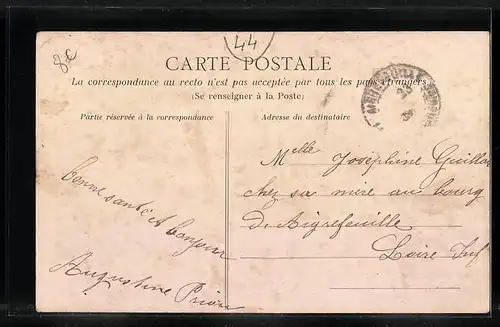 8€
44
CARTE POSTALE
La correspondance au recto n'est pas acceptée par tous les pays étrangers
(Se renseigner à la Poste)
Partie réservée à la correspondance
Adresse du destinataire
bonne santé et bonjour
Augustine
Melle Joséphine Guillon
chez sa mère au bourg
D. Aigrefeuille
Loire Inf